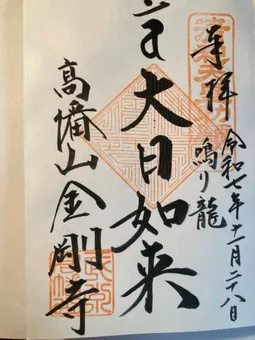 令和七年十一月二十八日
奉拝
鳴り龍
大日如来
高幡山金剛寺